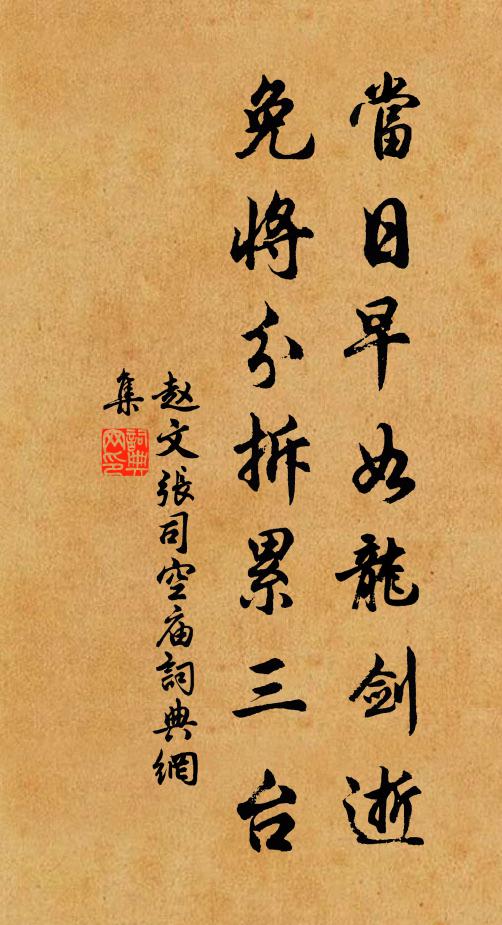 當日早如龍劍逝
免將分拆累三台
赵文張司空庙詞典網
集
詞典
网印